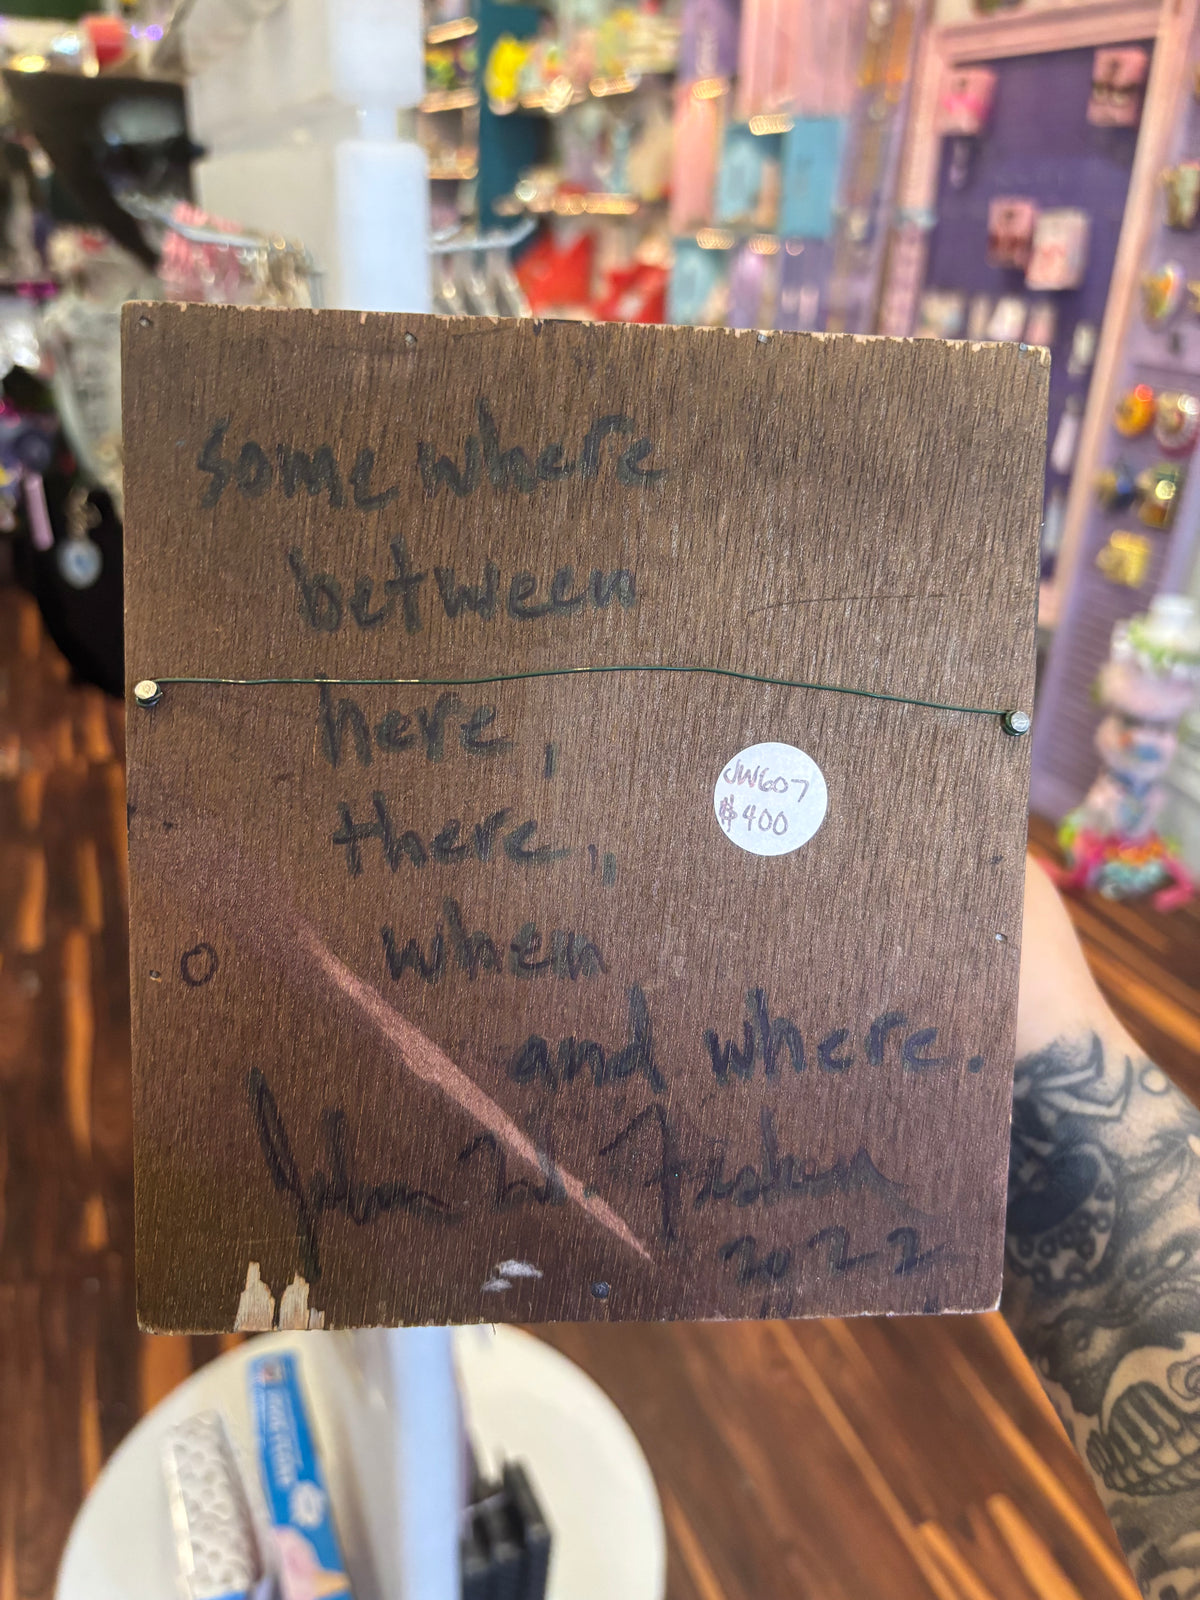 some where
between
here,
there,,
when
and where.
John W. Fisher
2022
JW607
$400
O